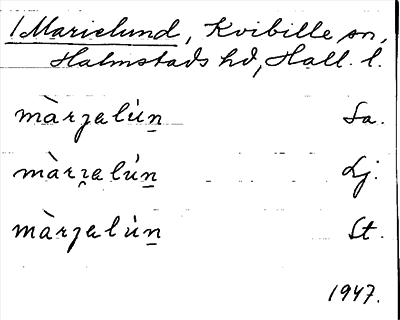 /Marielund, Kvibille sn,
Halmstads hd, Hall. l.
màrʒalún̲ Sa.
màrʒ̯alún̲ Lj.
màrʒalún̲ St.
1947.